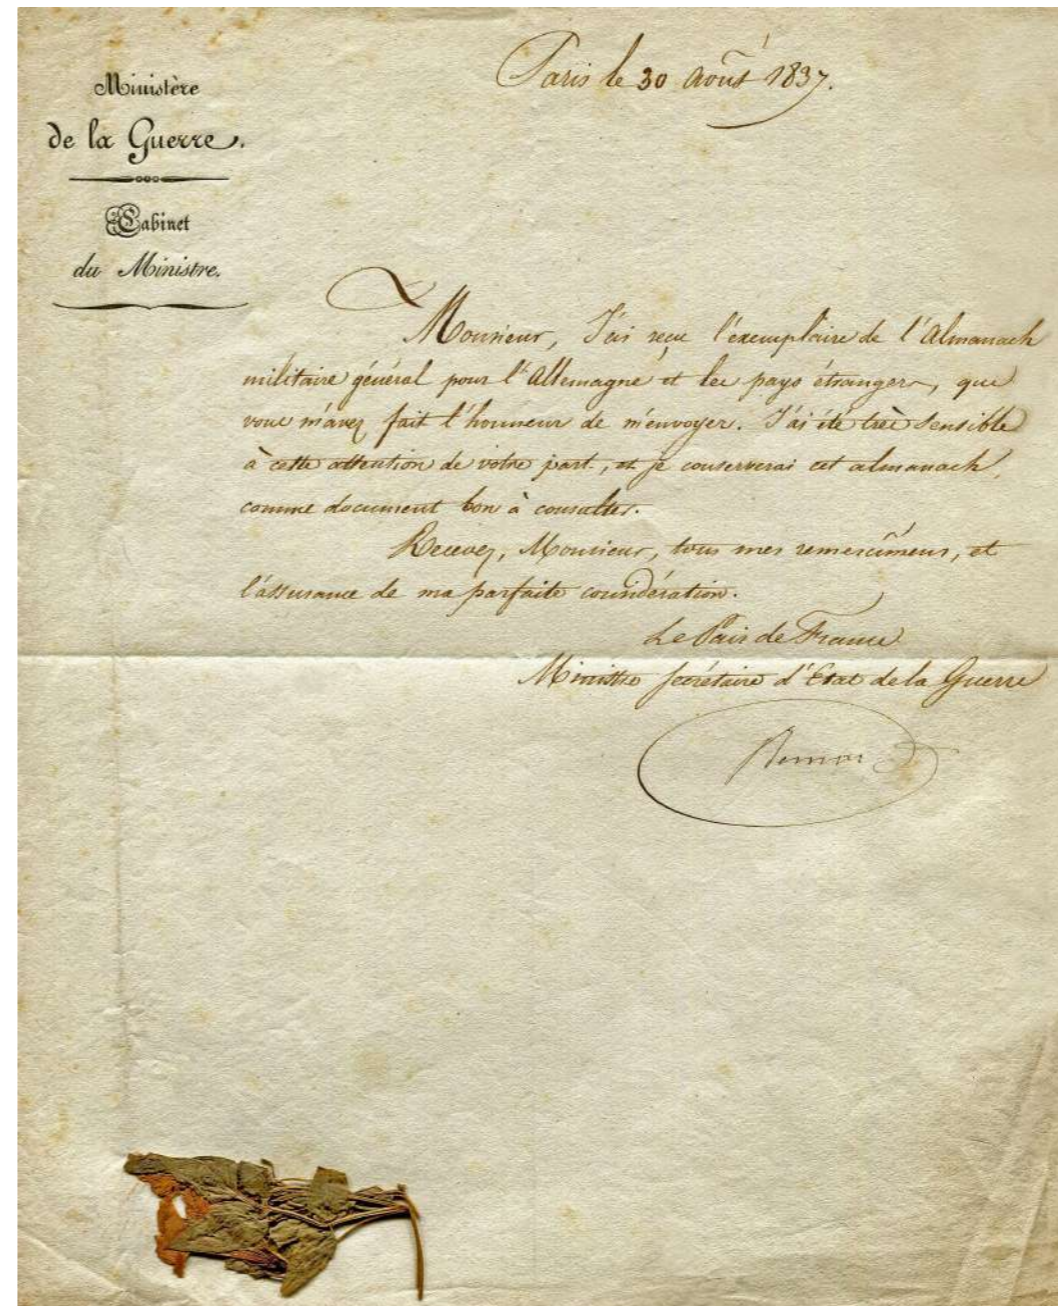 Ministère
de la Guerre.
Cabinet
du Ministre.
Paris le 30 août 1837.
Monsieur, J'ai reçu l'exemplaire de l'Almanach
militaire général pour l'Allemagne et les pays étrangers, que
vous m'avez fait l'honneur de m'envoyer. J'ai été très sensible
à cette attention de votre part, et je conserverai cet almanach,
comme document bon à consulter.
Recevez, Monsieur, tous mes remercîmens, et
l'assurance de ma parfaite considération.
Le Pair de France
Ministre secrétaire d'Etat de la Guerre
Bernard